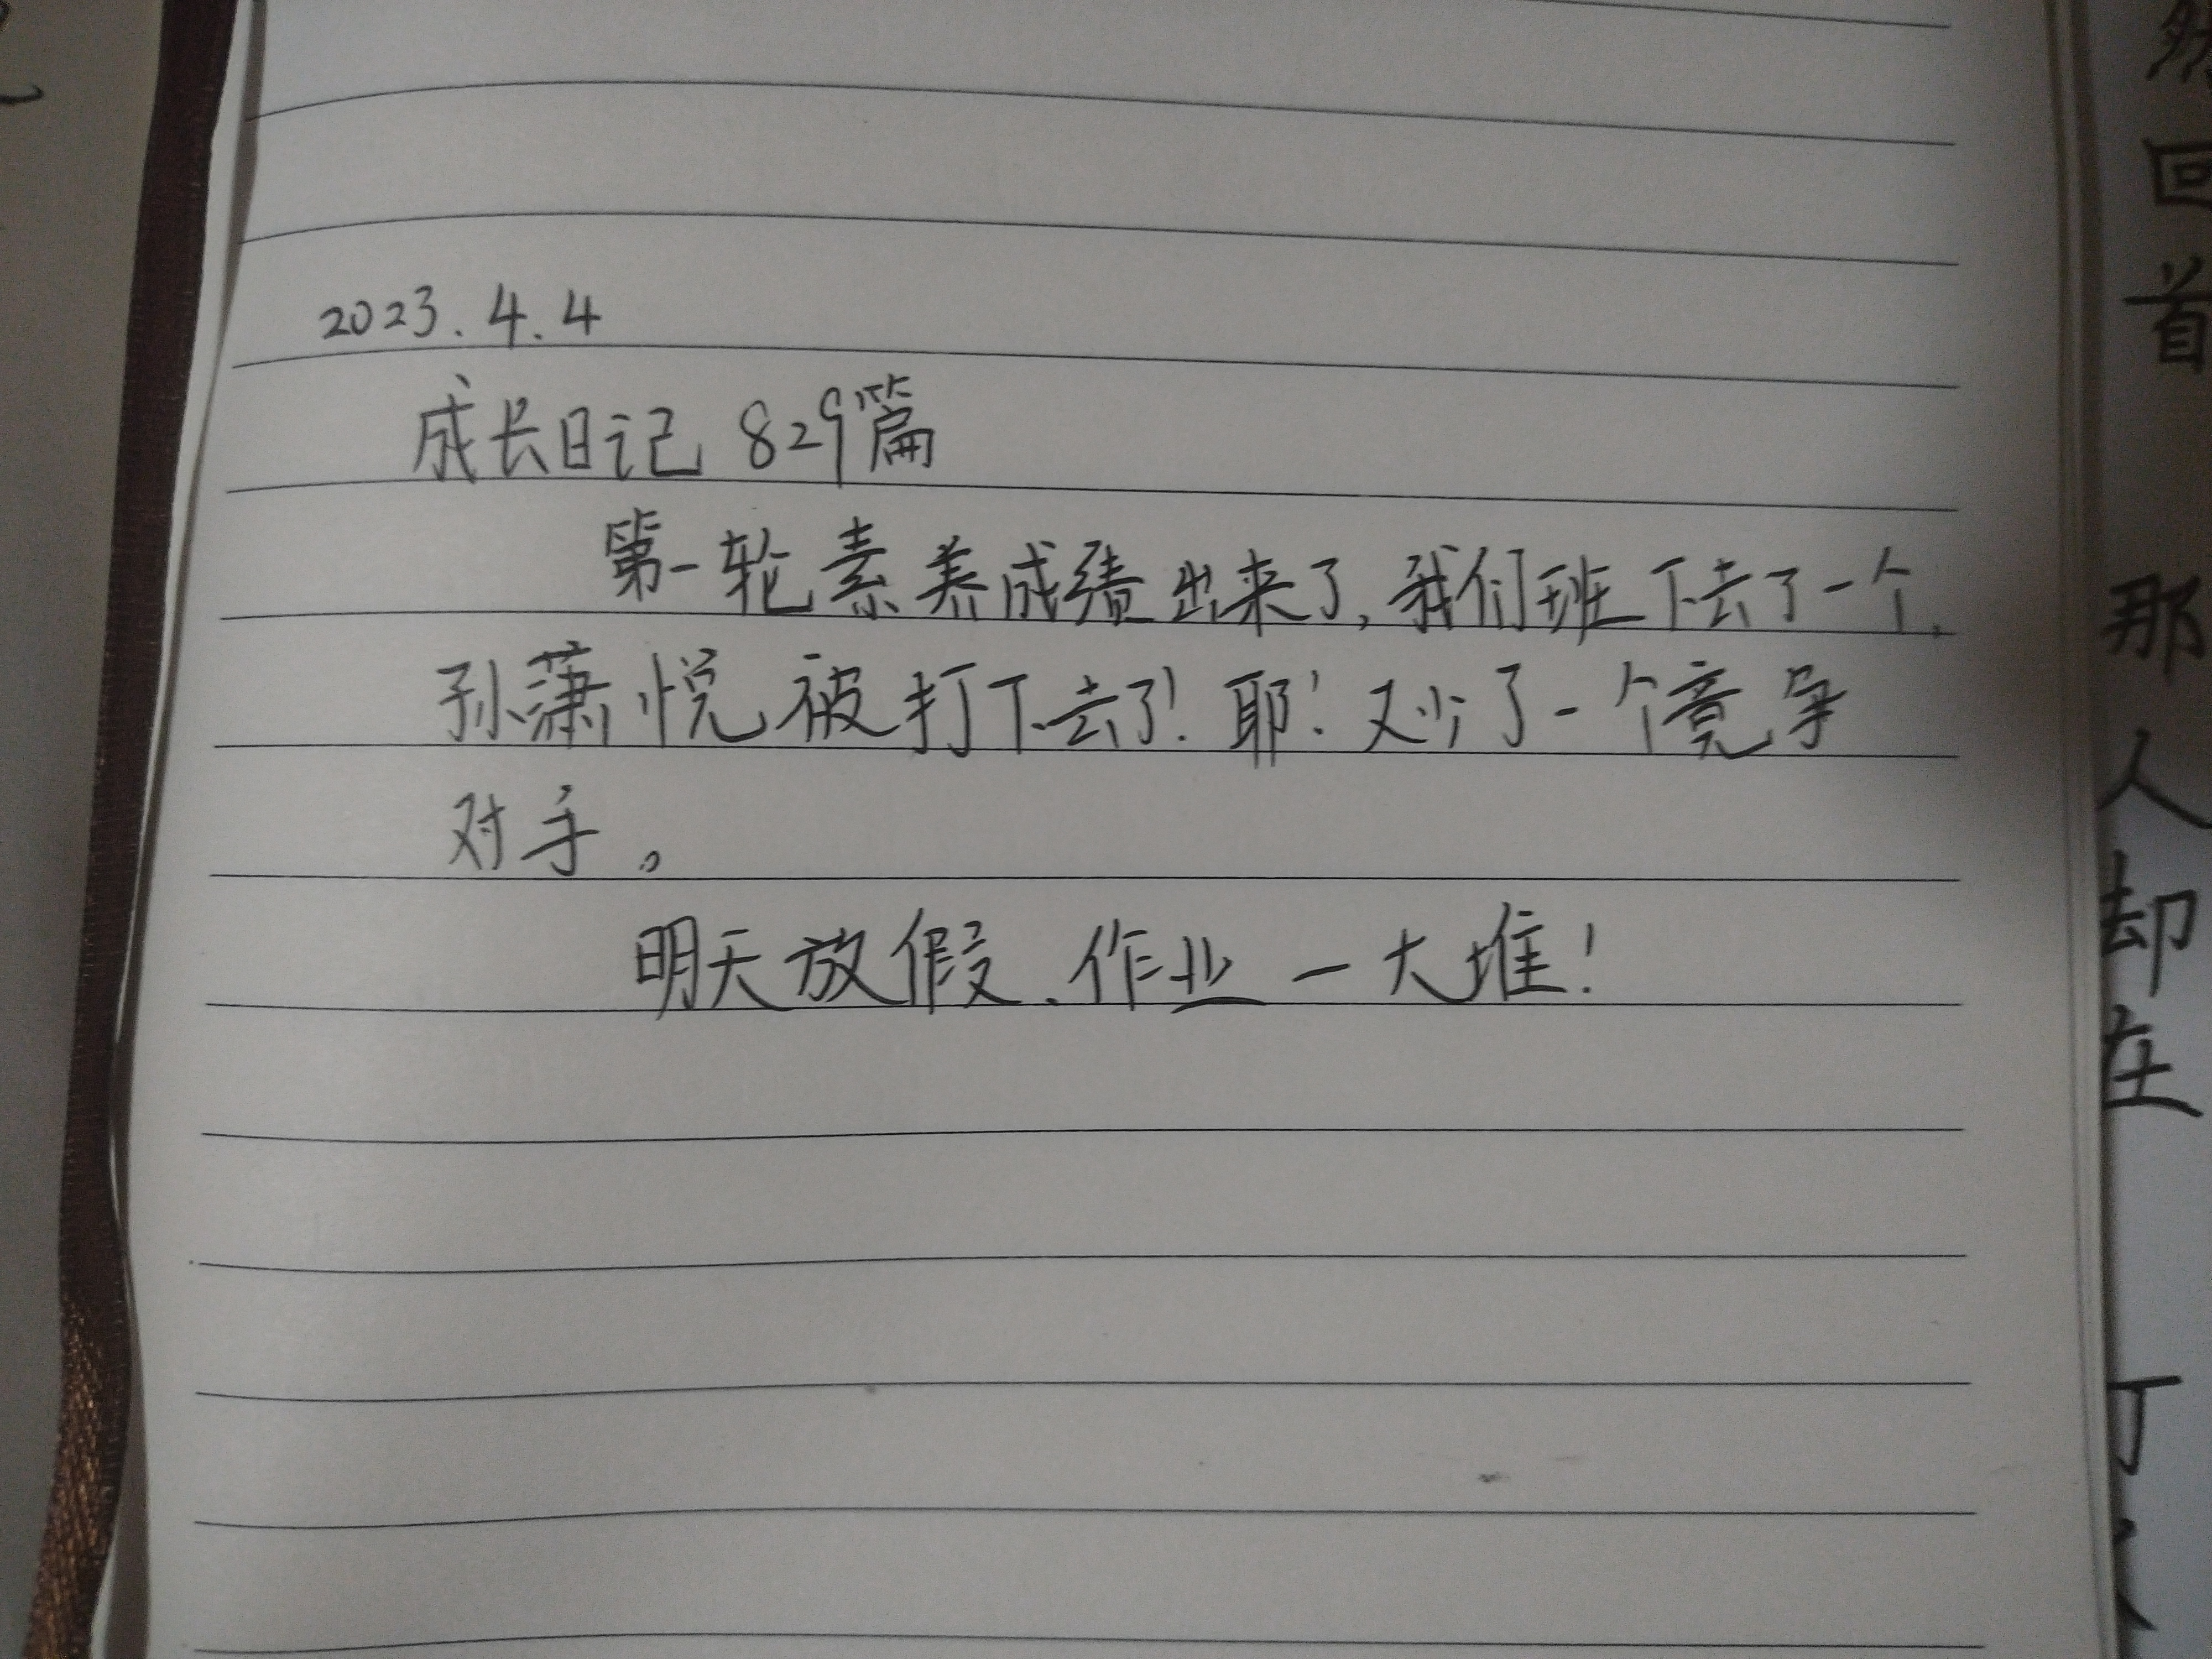 2023.4.4
成长日记 829篇
第一轮素养成绩出来了,我们班下去了一个,
孙潇悦被打下去了!耶!又少了一个竞争
对手。
明天放假、作业一大堆!
然回首
那人却在